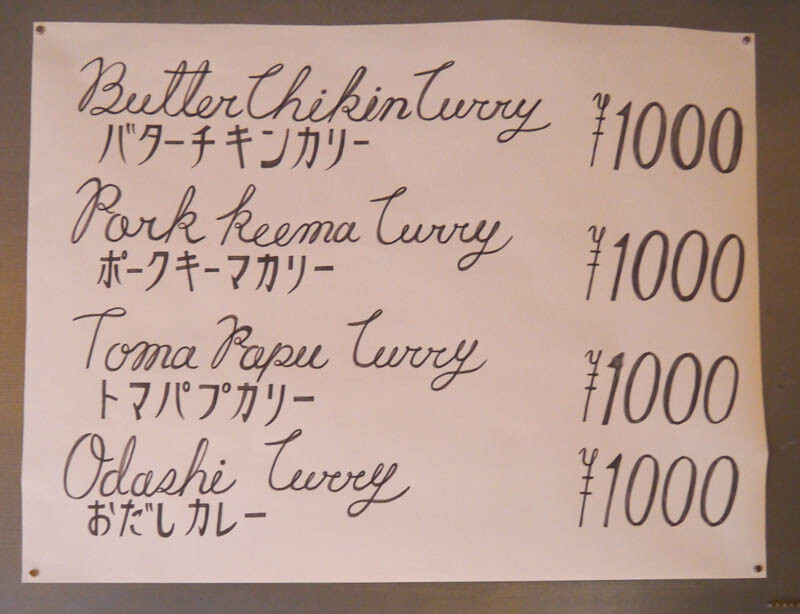 Butter Chikin Curry ¥1000
バターチキンカリー
Pork keema Curry ¥1000
ポークキーマカリー
Toma Papu Curry ¥1000
トマパプカリー
Odashi Curry ¥1000
おだしカレー